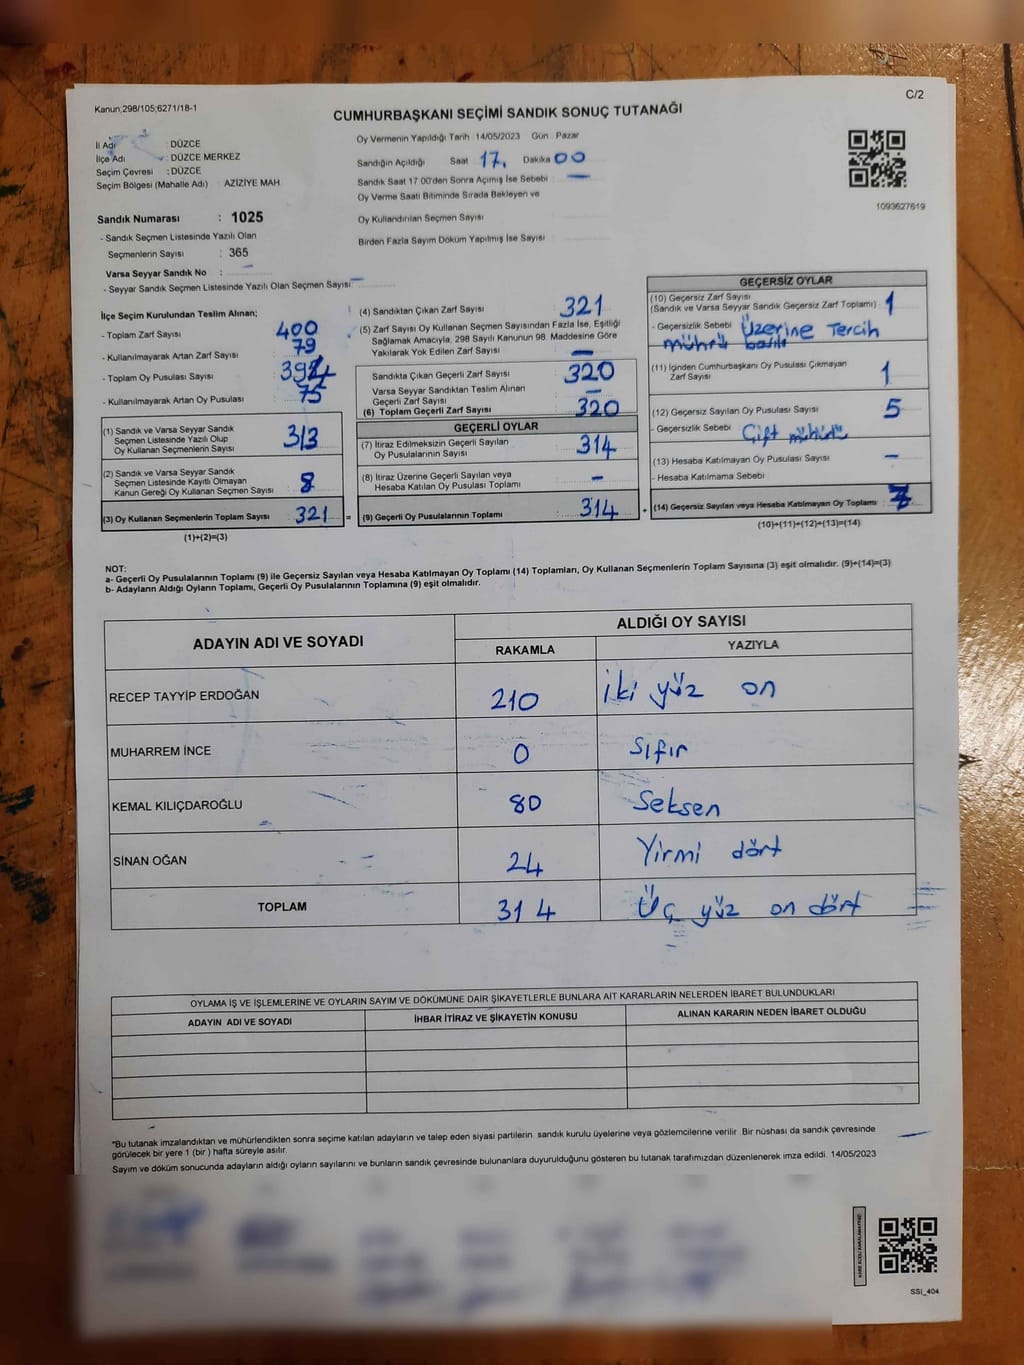 C/2
Kanun;298/105;6271/18-1
CUMHURBAŞKANI SEÇİMİ SANDIK SONUÇ TUTANAĞI
İl Adı : DÜZCE
İlçe Adı : DÜZCE MERKEZ
Seçim Çevresi : DÜZCE
Seçim Bölgesi (Mahalle Adı) AZİZİYE MAH
Oy Vermenin Yapıldığı Tarih 14/05/2023 Gün Pazar
Sandığın Açıldığı Saat 17. Dakika 00
Sandık Saat 17.00'den Sonra Açımış İse Sebebi —
Oy Verme Saati Bitiminde Sırada Bekleyen ve
Oy Kullandırılan Seçmen Sayısı
Birden Fazla Sayım Döküm Yapılmış İse Sayısı
1093627619
Sandık Numarası : 1025
- Sandık Seçmen Listesinde Yazılı Olan
Seçmenlerin Sayısı : 365
Varsa Seyyar Sandık No : —
- Seyyar Sandık Seçmen Listesinde Yazılı Olan Seçmen Sayısı: —
İlçe Seçim Kurulundan Teslim Alınan;
- Toplam Zarf Sayısı 400
- Kullanılmayarak Artan Zarf Sayısı 79
- Toplam Oy Pusulası Sayısı
- Kullanılmayarak Artan Oy Pusulası 75
(1) Sandık ve Varsa Seyyar Sandık
Seçmen Listesinde Yazılı Olup
Oy Kullanan Seçmenlerin Sayısı 313
(2) Sandık ve Varsa Seyyar Sandık
Seçmen Listesinde Kayıtlı Olmayan
Kanun Gereği Oy Kullanan Seçmen Sayısı 8
(3) Oy Kullanan Seçmenlerin Toplam Sayısı 321 =
(1)+(2)=(3)
(4) Sandıktan Çıkan Zarf Sayısı 321
(5) Zarf Sayısı Oy Kullanan Seçmen Sayısından Fazla İse, Eşitliği
Sağlamak Amacıyla, 298 Sayılı Kanunun 98. Maddesine Göre
Yakılarak Yok Edilen Zarf Sayısı —
Sandıkta Çıkan Geçerli Zarf Sayısı 320
Varsa Seyyar Sandıktan Teslim Alınan
Geçerli Zarf Sayısı —
(6) Toplam Geçerli Zarf Sayısı 320
GEÇERLİ OYLAR
(7) İtiraz Edilmeksizin Geçerli Sayılan
Oy Pusulalarının Sayısı 314
(8) İtiraz Üzerine Geçerli Sayılan veya
Hesaba Katılan Oy Pusulası Toplamı —
(9) Geçerli Oy Pusulalarının Toplamı 314 +
GEÇERSİZ OYLAR
(10) Geçersiz Zarf Sayısı
(Sandık ve Varsa Seyyar Sandık Geçersiz Zarf Toplamı) 1
- Geçersizlik Sebebi Üzerine Tercih
mührü basılı
(11) İçinden Cumhurbaşkanı Oy Pusulası Çıkmayan
Zarf Sayısı 1
(12) Geçersiz Sayılan Oy Pusulası Sayısı 5
- Geçersizlik Sebebi Çift mühürlü
(13) Hesaba Katılmayan Oy Pusulası Sayısı —
- Hesaba Katılmama Sebebi
(14) Geçersiz Sayılan veya Hesaba Katılmayan Oy Toplamı 7
(10)+(11)+(12)+(13)=(14)
NOT:
a- Geçerli Oy Pusulalarının Toplamı (9) ile Geçersiz Sayılan veya Hesaba Katılmayan Oy Toplamı (14) Toplamları, Oy Kullanan Seçmenlerin Toplam Sayısına (3) eşit olmalıdır. (9)+(14)=(3)
b- Adayların Aldığı Oyların Toplamı, Geçerli Oy Pusulalarının Toplamına (9) eşit olmalıdır.
ADAYIN ADI VE SOYADI
ALDIĞI OY SAYISI
RAKAMLA YAZIYLA
RECEP TAYYİP ERDOĞAN 210 iki yüz on
MUHARREM İNCE 0 Sıfır
KEMAL KILIÇDAROĞLU 80 Seksen
SİNAN OĞAN 24 Yirmi dört
TOPLAM 314 Üç yüz on dört
OYLAMA İŞ VE İŞLEMLERİNE VE OYLARIN SAYIM VE DÖKÜMÜNE DAİR ŞİKAYETLERLE BUNLARA AİT KARARLARIN NELERDEN İBARET BULUNDUKLARI
ADAYIN ADI VE SOYADI İHBAR İTİRAZ VE ŞİKAYETİN KONUSU ALINAN KARARIN NEDEN İBARET OLDUĞU
*Bu tutanak imzalandıktan ve mühürlendikten sonra seçime katılan adayların ve talep eden siyasi partilerin sandık kurulu üyelerine veya gözlemcilerine verilir. Bir nüshası da sandık çevresinde
görülecek bir yere 1 (bir) hafta süreyle asılır.
Sayım ve döküm sonucunda adayların aldığı oyların sayılarını ve bunların sandık çevresinde bulunanlara duyurulduğunu gösteren bu tutanak tarafımızdan düzenlenerek imza edildi. 14/05/2023
SSI_404